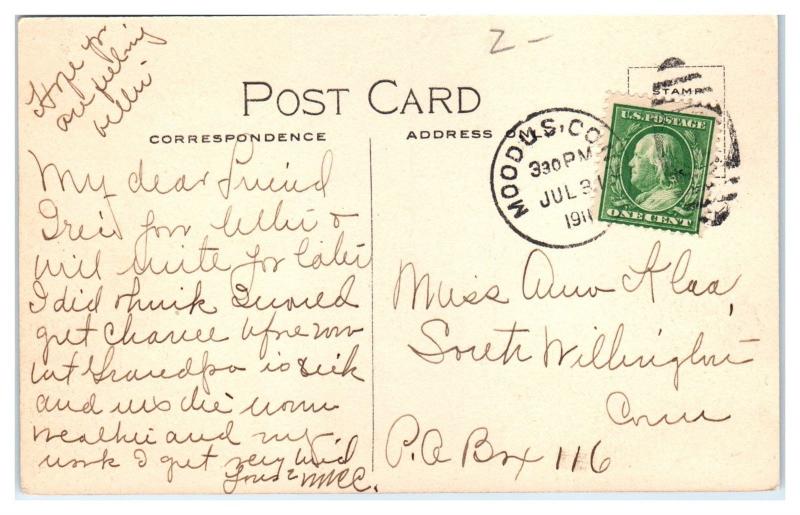 Hope you
are feeling
better
2-
POST CARD
CORRESPONDENCE
ADDRESS ONLY
STAMP
MOODUS, CON
330 PM
JUL 31
1911
U.S. POSTAGE
ONE CENT
My dear Friend
I rec'd your letter &
will write you later
I did think I would
get chance before now
but Grandpa is sick
and us the warm
weather and my
work I get very tired
Yours MCC.
Miss Anna
South Willington
Conn
P.O Box 116